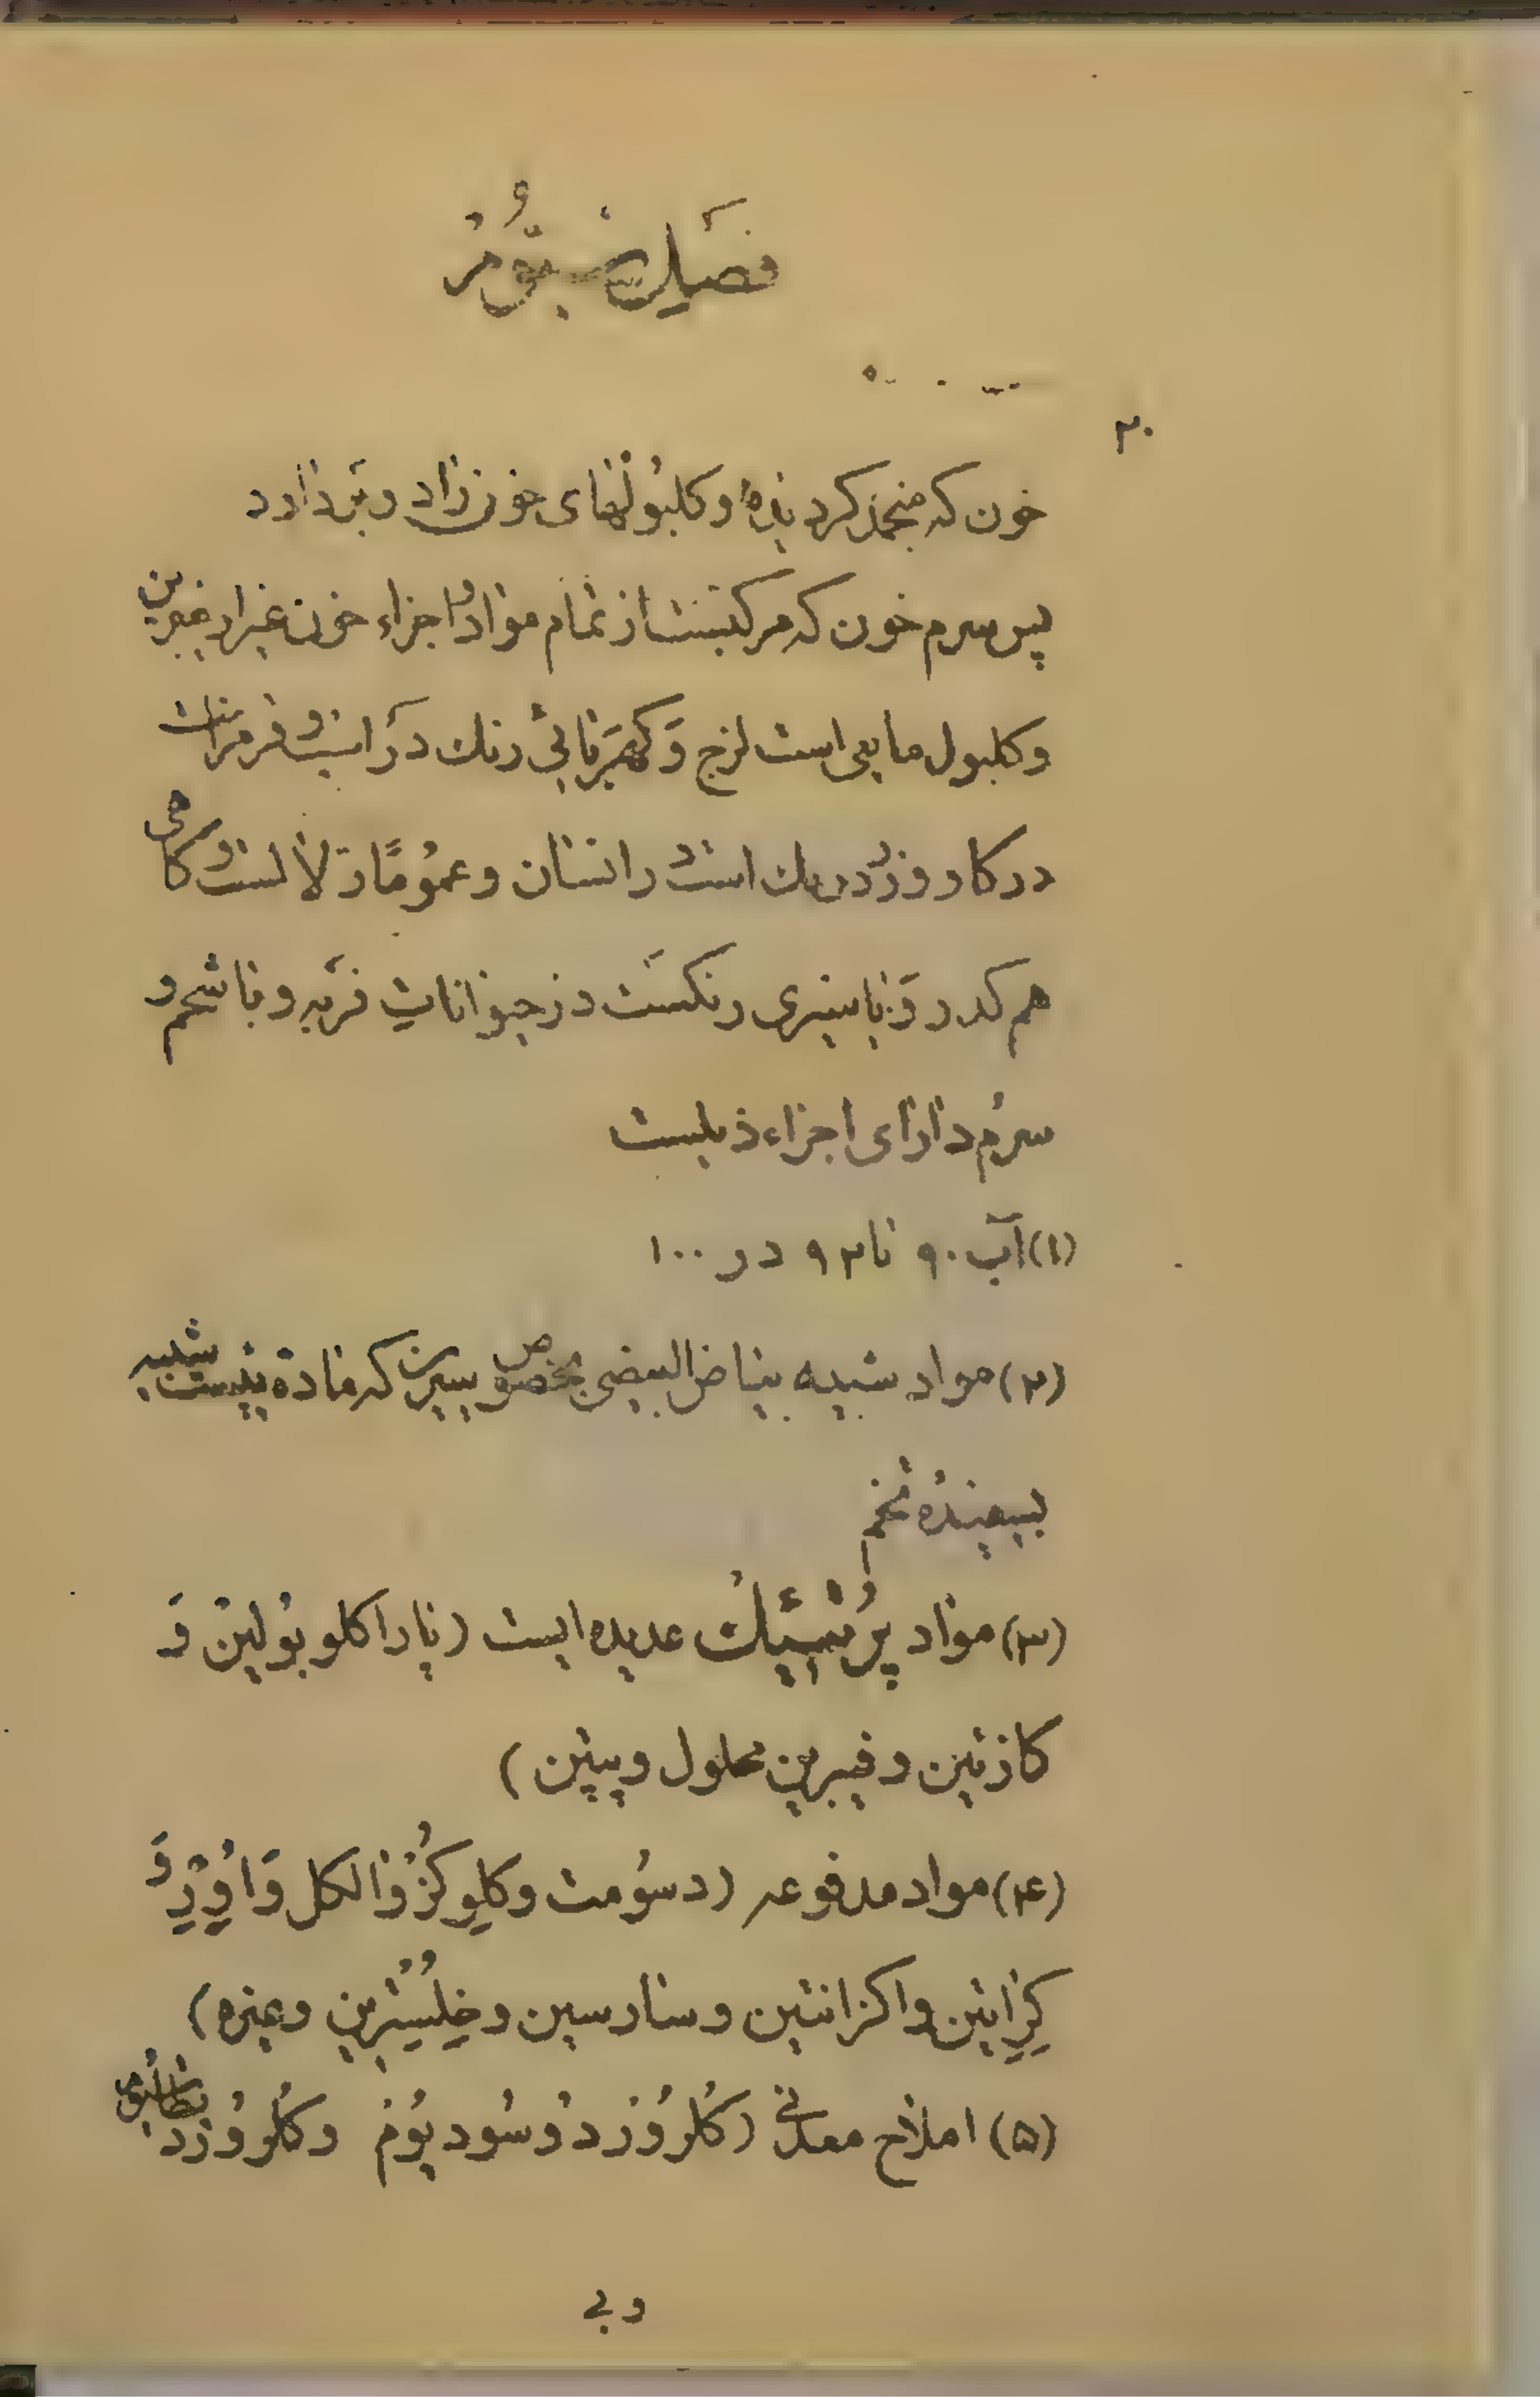 فصل سیّوُم
۳۰
خون که منجمد کردیده و کلبُولهای خون زاد و بَر دارد
پس سرم خون که مرکبست از تمام مواد و اجزاء خون غیر از فیبرین
و کلبول مایعی است لزج وَ کَهرَبائی رنك در اسب و قرمز رنك
در کاو و زرد رنك است در انسان و عمومًا زلالست و کاهی
هم کدر و یا شیری رنکست در حیوانات فربه و با شحم و
سرُم دارای اجزاء ذیلست
(۱) آب ۹۰ تا ۹۲ در ۱۰۰
(۲) مواد شبیه ببیاض البیضی بخصوص سرین که ماده ئیست شبیه
بسفیده تخم
(۳) مواد پرُتئیك عدیده ایست (پارا کلوبُولین وَ
کازئین و فیبرین محلول و پپتن)
(۴) مواد مدفوعه (دسُومت و کلوکُز و الکل وَ اوُرِه وَ
کِرِاتین و اکزانتین و سارسین و خِلِسُترین و غیره)
(۵) املاح معدنی (کُلرُورُ دُ وسُودیُوم و کُلرورُ د پطاسیُوم
و بی